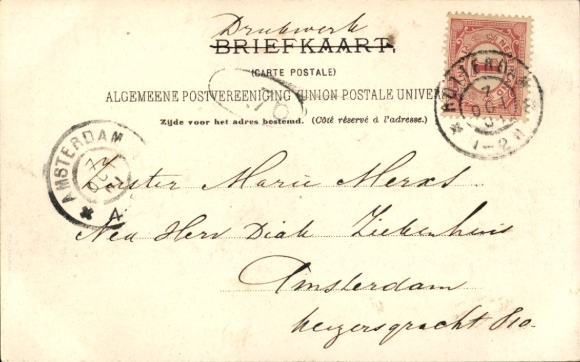 Drukwerk
BRIEFKAART,
(CARTE POSTALE)
ALGEMEENE POSTVEREENIGING (UNION POSTALE UNIVER
Zijde voor het adres bestemd. (Côté réservé à l'adresse.)
ROTTERDAM
1-2N
AMSTERDAM
A
Zuster Marie Merks
Ned Herv Diak Ziekenhuis
Amsterdam
Keizersgracht 810.